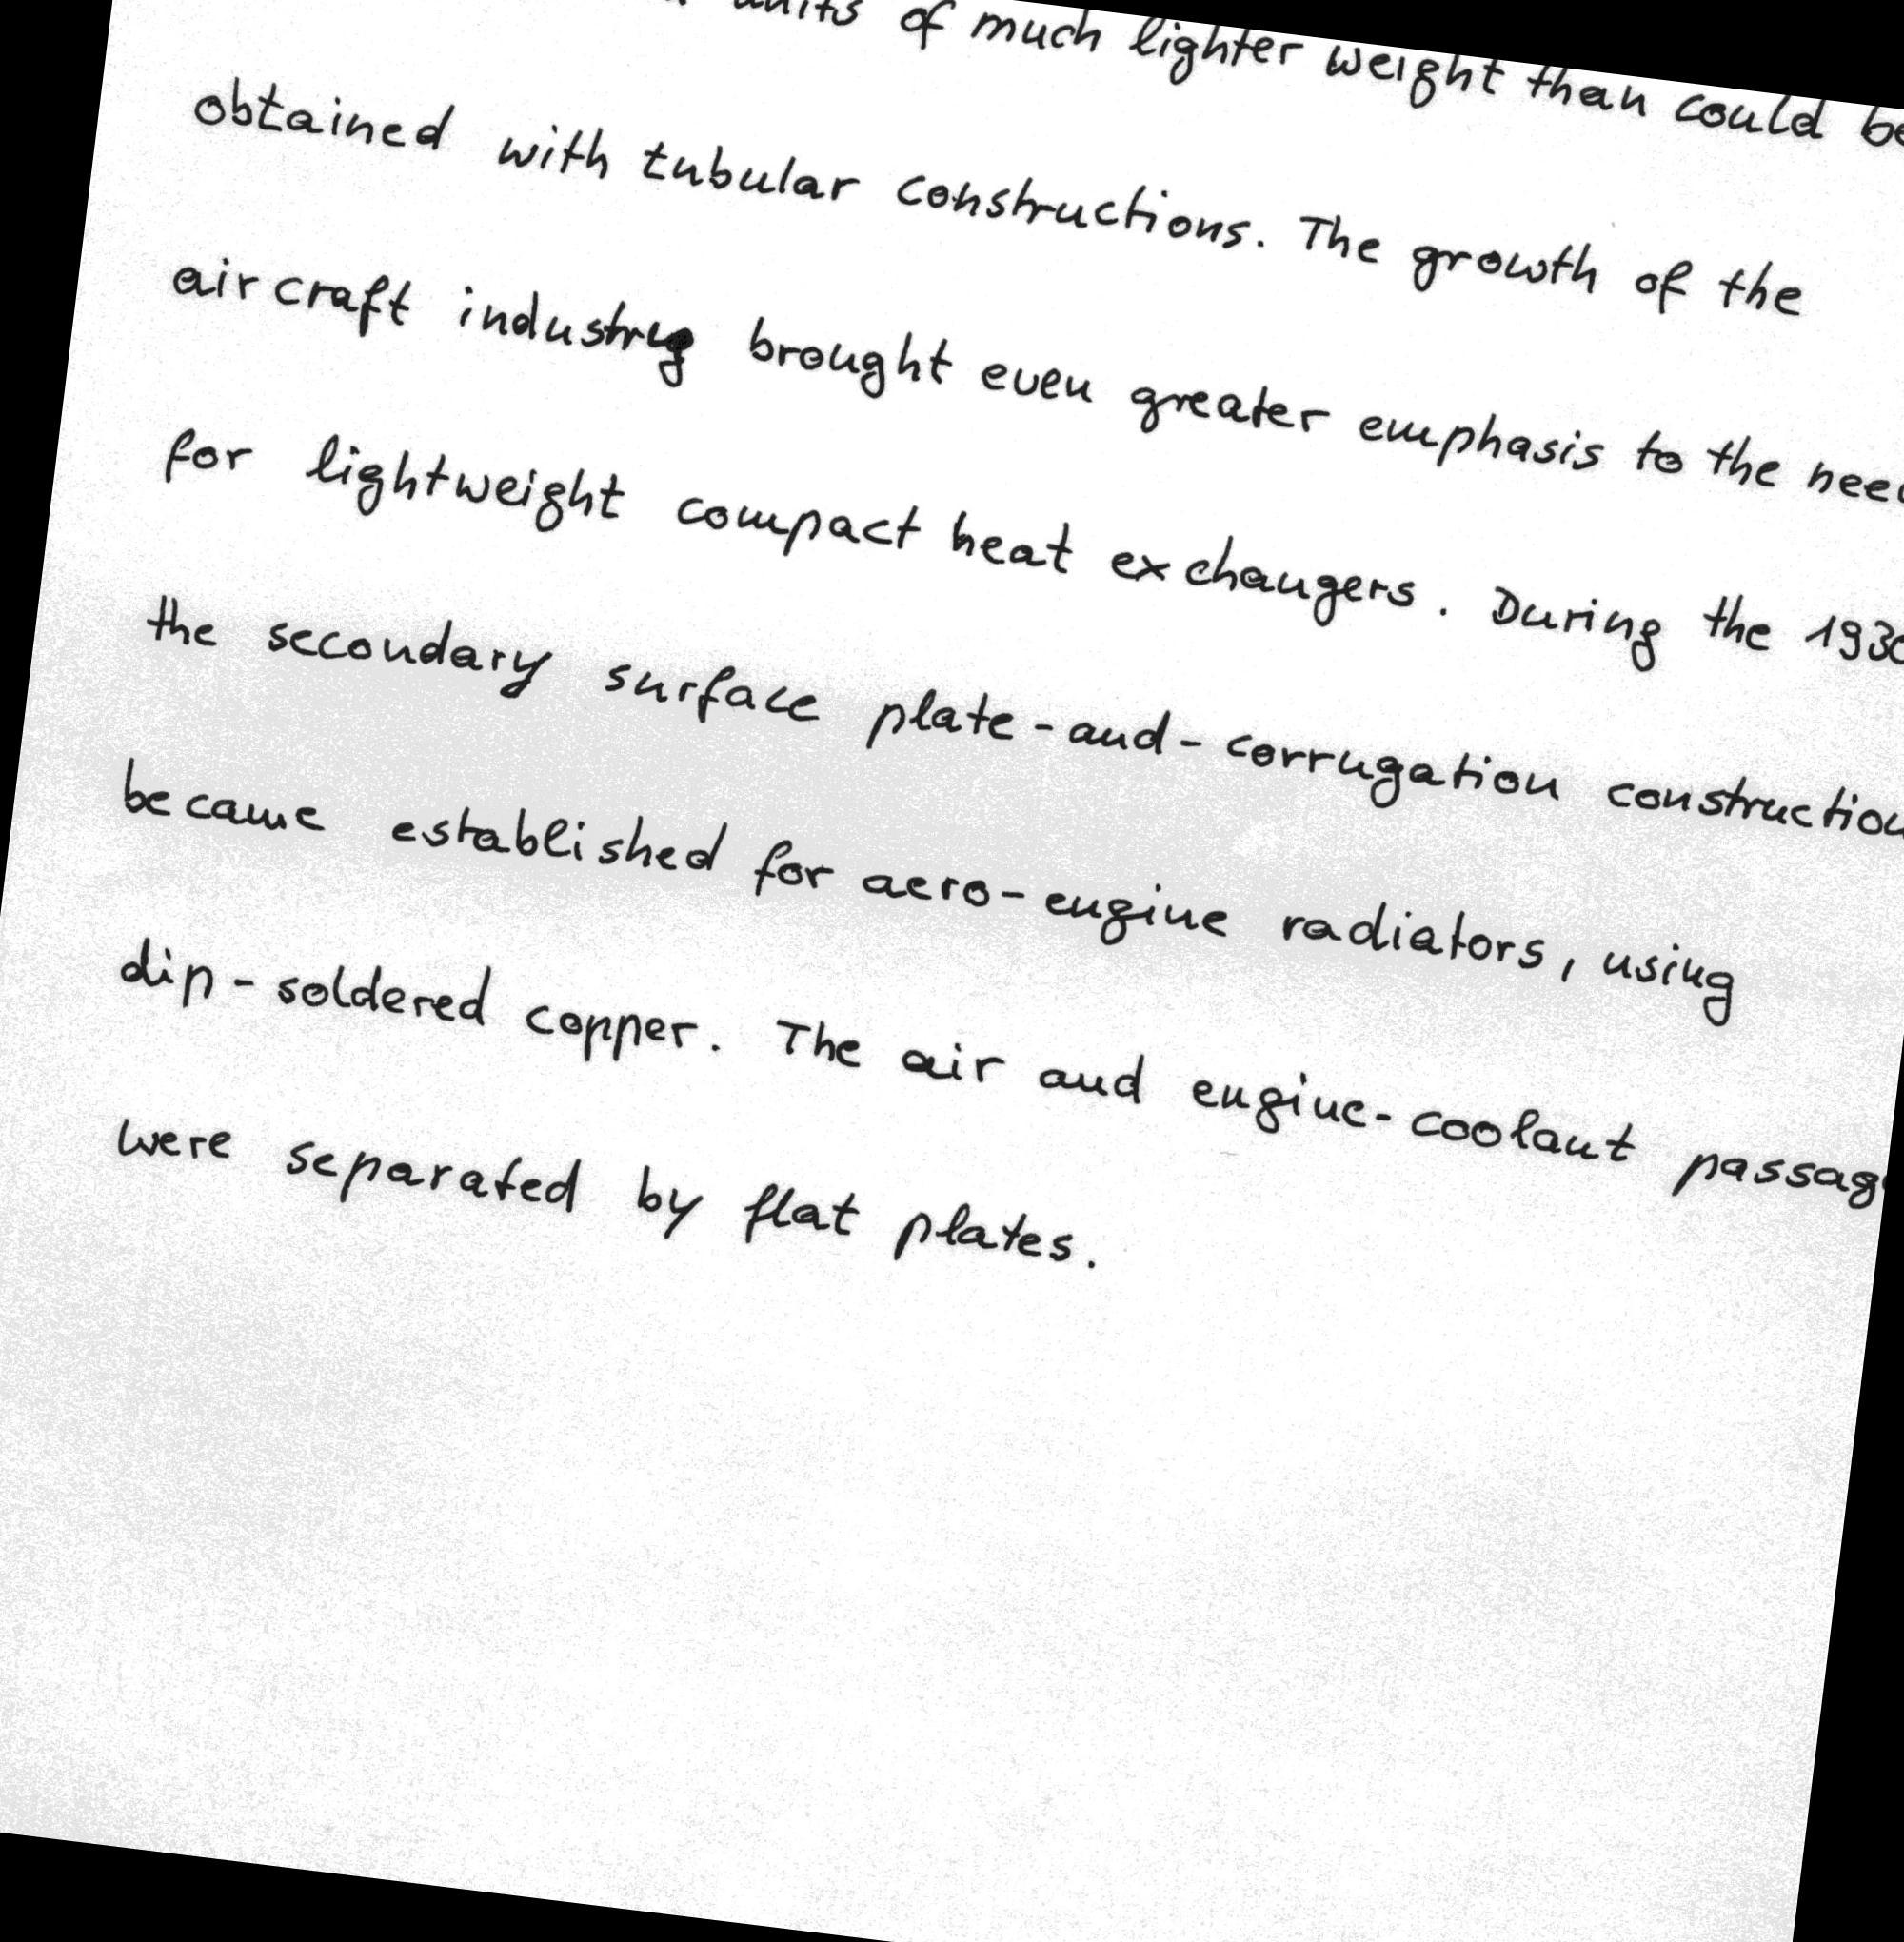 units of much lighter weight than could be
obtained with tubular constructions. The growth of the
aircraft industry brought even greater emphasis to the need
for lightweight compact heat exchangers. During the
the secondary surface plate-and-corrugation construction
became established for aero-engine radiators, using
dip-soldered copper. The air and engine-coolant
were separated by flat plates.